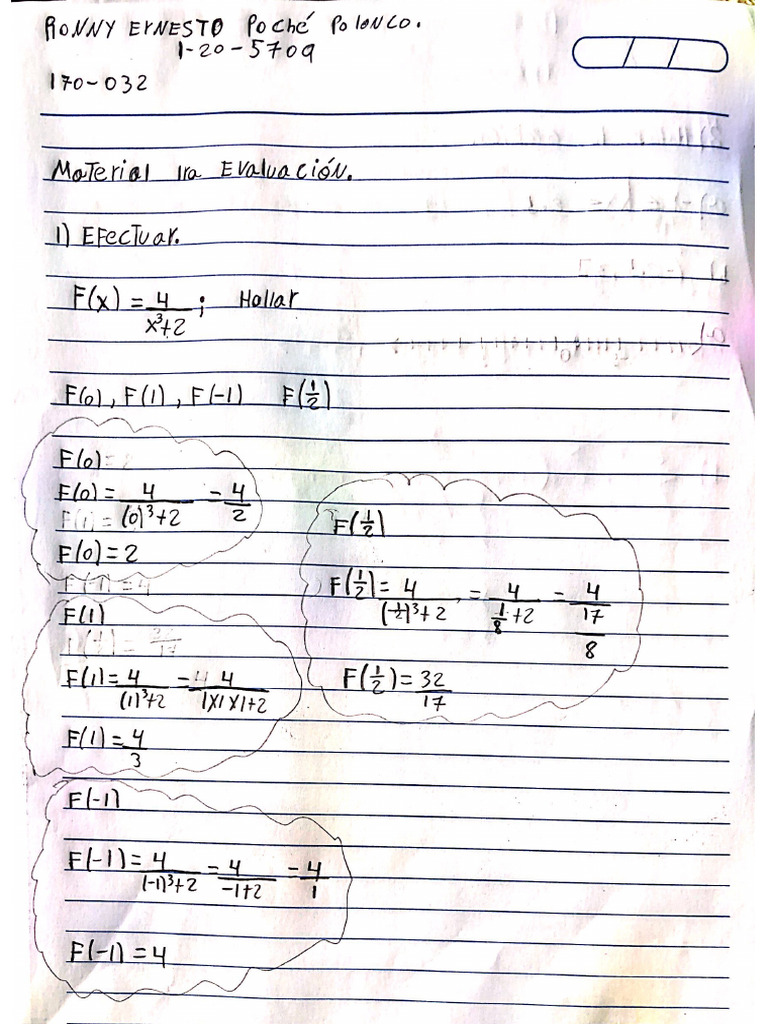 RONNY ERNESTO Poché Polonco.
1-20-5709
170-032
Material 1ra Evaluación.
1) Efectuar.
F(x) = 4/(x³+2) ; Hallar
F(0), F(1), F(-1) F(1/2)
F(0)=
F(0) = 4/((0)³+2) = 4/2
F(0) = 2
F(1)
F(1) = 4/((1)³+2) = 4/(1X1X1+2)
F(1) = 4/3
F(-1)
F(-1) = 4/((-1)³+2) = 4/(-1+2) = 4/1
F(-1) = 4
F(1/2)
F(1/2) = 4/((1/2)³+2) = 4/(1/8+2) = 4/(17/8)
F(1/2) = 32/17